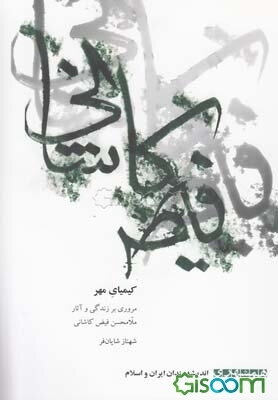 فیض کاشانی
کیمیای مهر
مروری بر زندگی و آثار
ملامحسن فیض کاشانی
شهناز شایان‌فر
اندیشمندان ایران و اسلام
Gisoom
.com